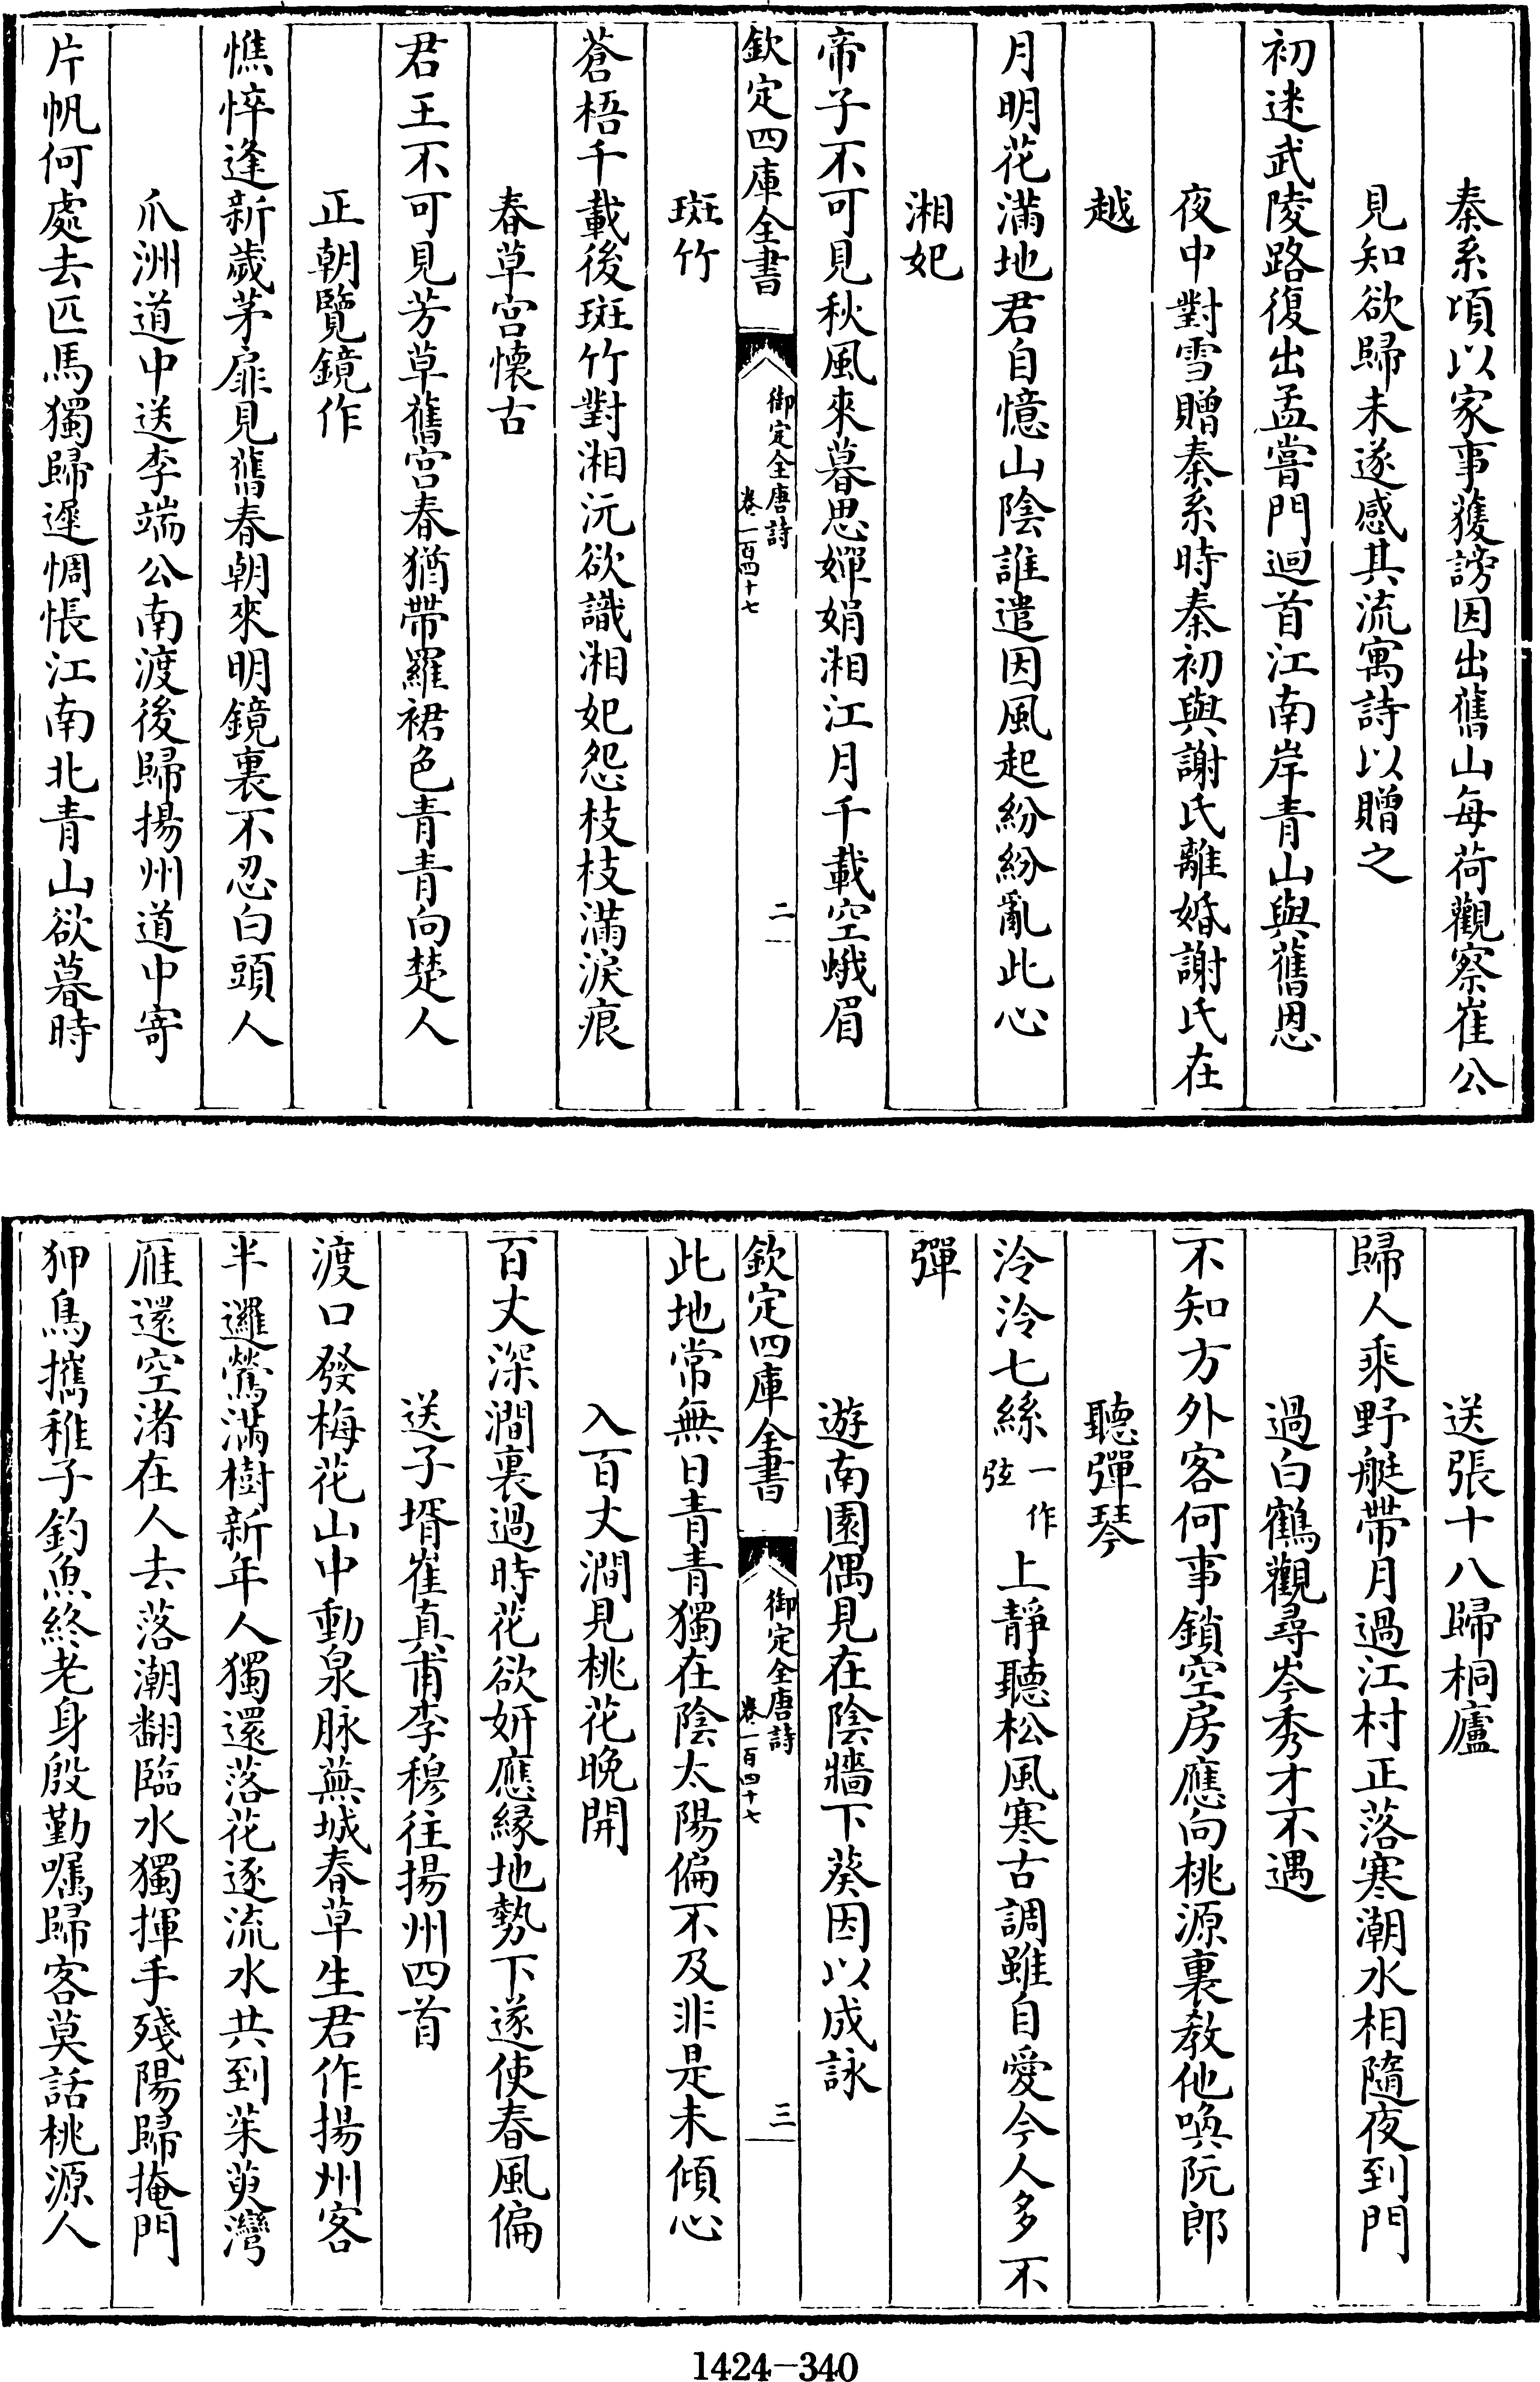 秦系頃以家事獲謗因出舊山每荷觀察崔公
見知欲歸未遂感其流寓詩以贈之
初迷武陵路復出孟嘗門迴首江南岸青山與舊恩
夜中對雪贈秦系時秦初與謝氏離婚謝氏在
越
月明花滿地君自憶山陰誰遣因風起紛紛亂此心
湘妃
帝子不可見秋風來暮思嬋娟湘江月千載空蛾眉
欽定四庫全書
御定全唐詩
卷一百四十七
二
斑竹
蒼梧千載後斑竹對湘沅欲識湘妃怨枝枝滿淚痕
春草宮懷古
君王不可見芳草舊宮春猶帶羅裙色青青向楚人
正朝覽鏡作
憔悴逢新歲茅扉見舊春朝來明鏡裏不忍白頭人
瓜洲道中送李端公南渡後歸揚州道中寄
片帆何處去匹馬獨歸遲惆悵江南北青山欲暮時
送張十八歸桐廬
歸人乘野艇帶月過江村正落寒潮水相隨夜到門
過白鶴觀尋岑秀才不遇
不知方外客何事鎖空房應向桃源裏教他喚阮郎
聽彈琴
泠泠七絲一作弦上靜聽松風寒古調雖自愛今人多不
彈
遊南園偶見在陰牆下葵因以成詠
欽定四庫全書
御定全唐詩
卷一百四十七
三
此地常無日青青獨在陰太陽偏不及非是未傾心
入百丈澗見桃花晚開
百丈深澗裏過時花欲妍應緣地勢下遂使春風偏
送子壻崔真甫李穆往揚州四首
渡口發梅花山中動泉脉蕪城春草生君作揚州客
半邏鶯滿樹新年人獨還落花逐流水共到茱萸灣
雁還空渚在人去落潮翻臨水獨揮手殘陽歸掩門
狎鳥攜稚子釣魚終老身殷勤囑歸客莫話桃源人
1424-340